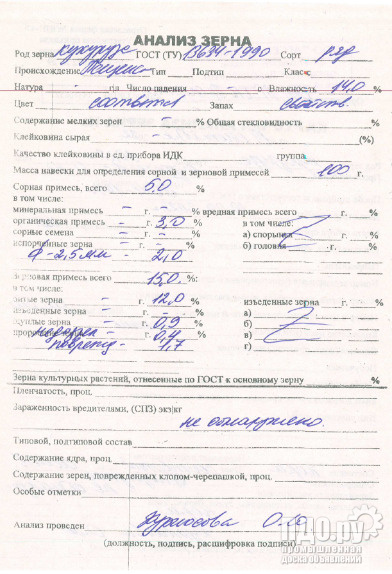 АНАЛИЗ ЗЕРНА
Род зерна кукуруза ГОСТ (ТУ) 13634-1990 Сорт ряд
Происхождение Тип Подтип Класс
Натура - г/л Число падения - с Влажность 14,0 %
Цвет соответст Запах свойств.
Содержание мелких зерен - % Общая стекловидность %
Клейковина сырая - (%)
Качество клейковины в ед. прибора ИДК группа
Масса навески для определения сорной и зерновой примесей 100 г.
Сорная примесь, всего 5,0 %
в том числе:
минеральная примесь - г. - % вредная примесь всего г. %
органическая примесь - г. 3,0 % в том числе:
сорные семена - г. - % а) спорынья
испорченные зерна - г. - % б) головня г. %
Ф-2,5 мм - 2,0
зерновая примесь всего 15,0 %:
в том числе:
битые зерна - г. 12,0 % изъеденные зерна г. %
изъеденные зерна - г. - % а)
щуплые зерна - г. 0,9 % б)
г. 0,4 % в)
поврежд - 1,7 г)
Зерна культурных растений, отнесенные по ГОСТ к основному зерну %
Пленчатость, проц.
Зараженность вредителями, (СПЗ) экз/кг
не обнаружено.
Типовой, подтиповой состав
Содержание ядра, проц.
Содержание зерен, поврежденных клопом-черепашкой, проц.
Особые отметки
Анализ проведен
(должность, подпись, расшифровка подписи)
ПДО.ру
промышленная
доска объявлений